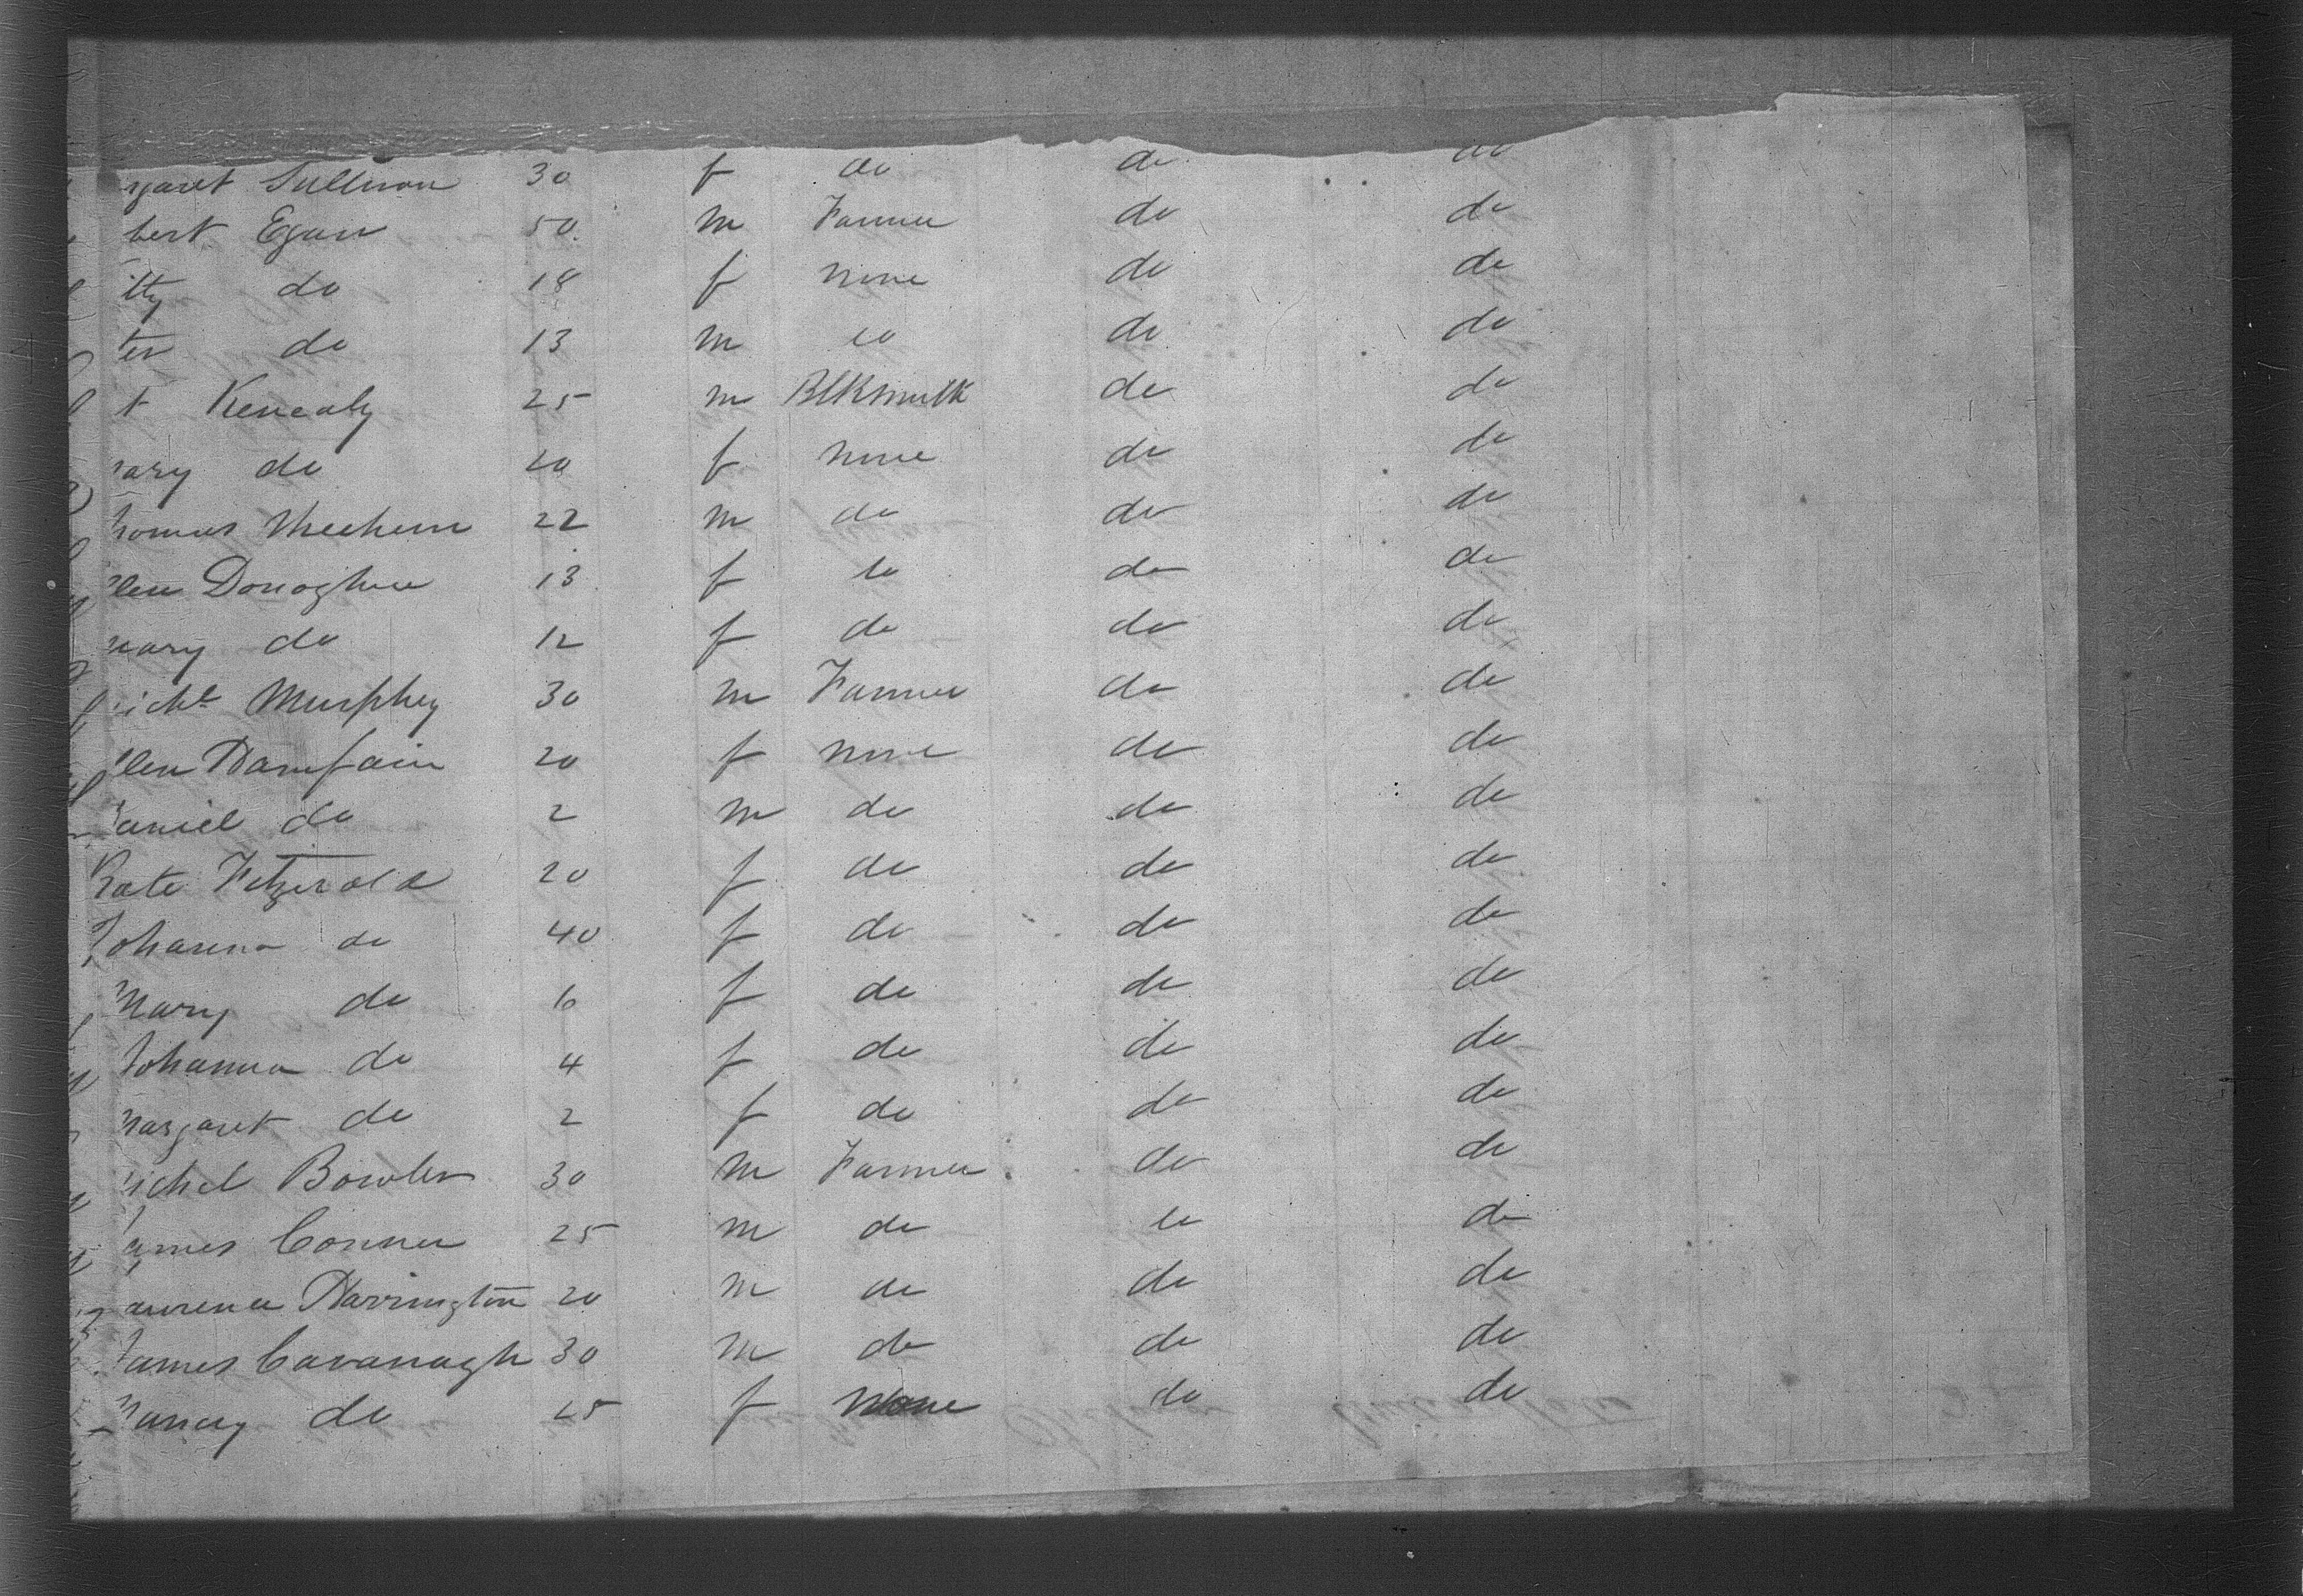 rgaret Sullivan 30 f do do do
bert Egan 50 m Farmer do do
itty do 18 f none do do
ter do 13 m do do do
t Kenealy 25 m Blksmith do do
mary do 20 f none do do
homas Meehan 22 m do do do
llen Donoghue 13 f do do do
mary do 12 f do do do
ichl Murphy 30 m Farmer do do
llen 20 f none do do
Daniel do 2 m do do do
Kate Fitzerald 20 f do do do
Johanna do 40 f do do do
Mary do 6 f do do do
Johanna do 4 f do do do
Margaret do 2 f do do do
ichel Bowler 30 m Farmer do do
James Conner 25 m do do do
aurence Harrington 20 m do do do
James Cavanagh 30 m do do do
Nancy do 25 f None do do